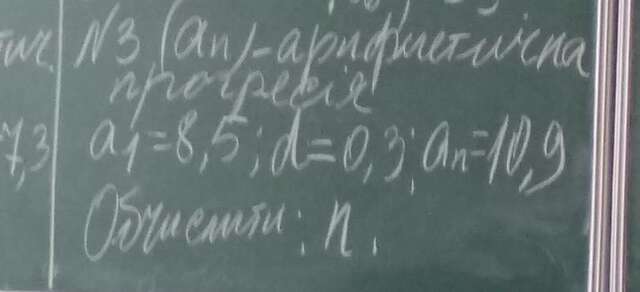 тич.
№3 (an) – арифметична
прогресія
7,3
a1=8,5; d=0,3; an=10,9
Обчислити: n.